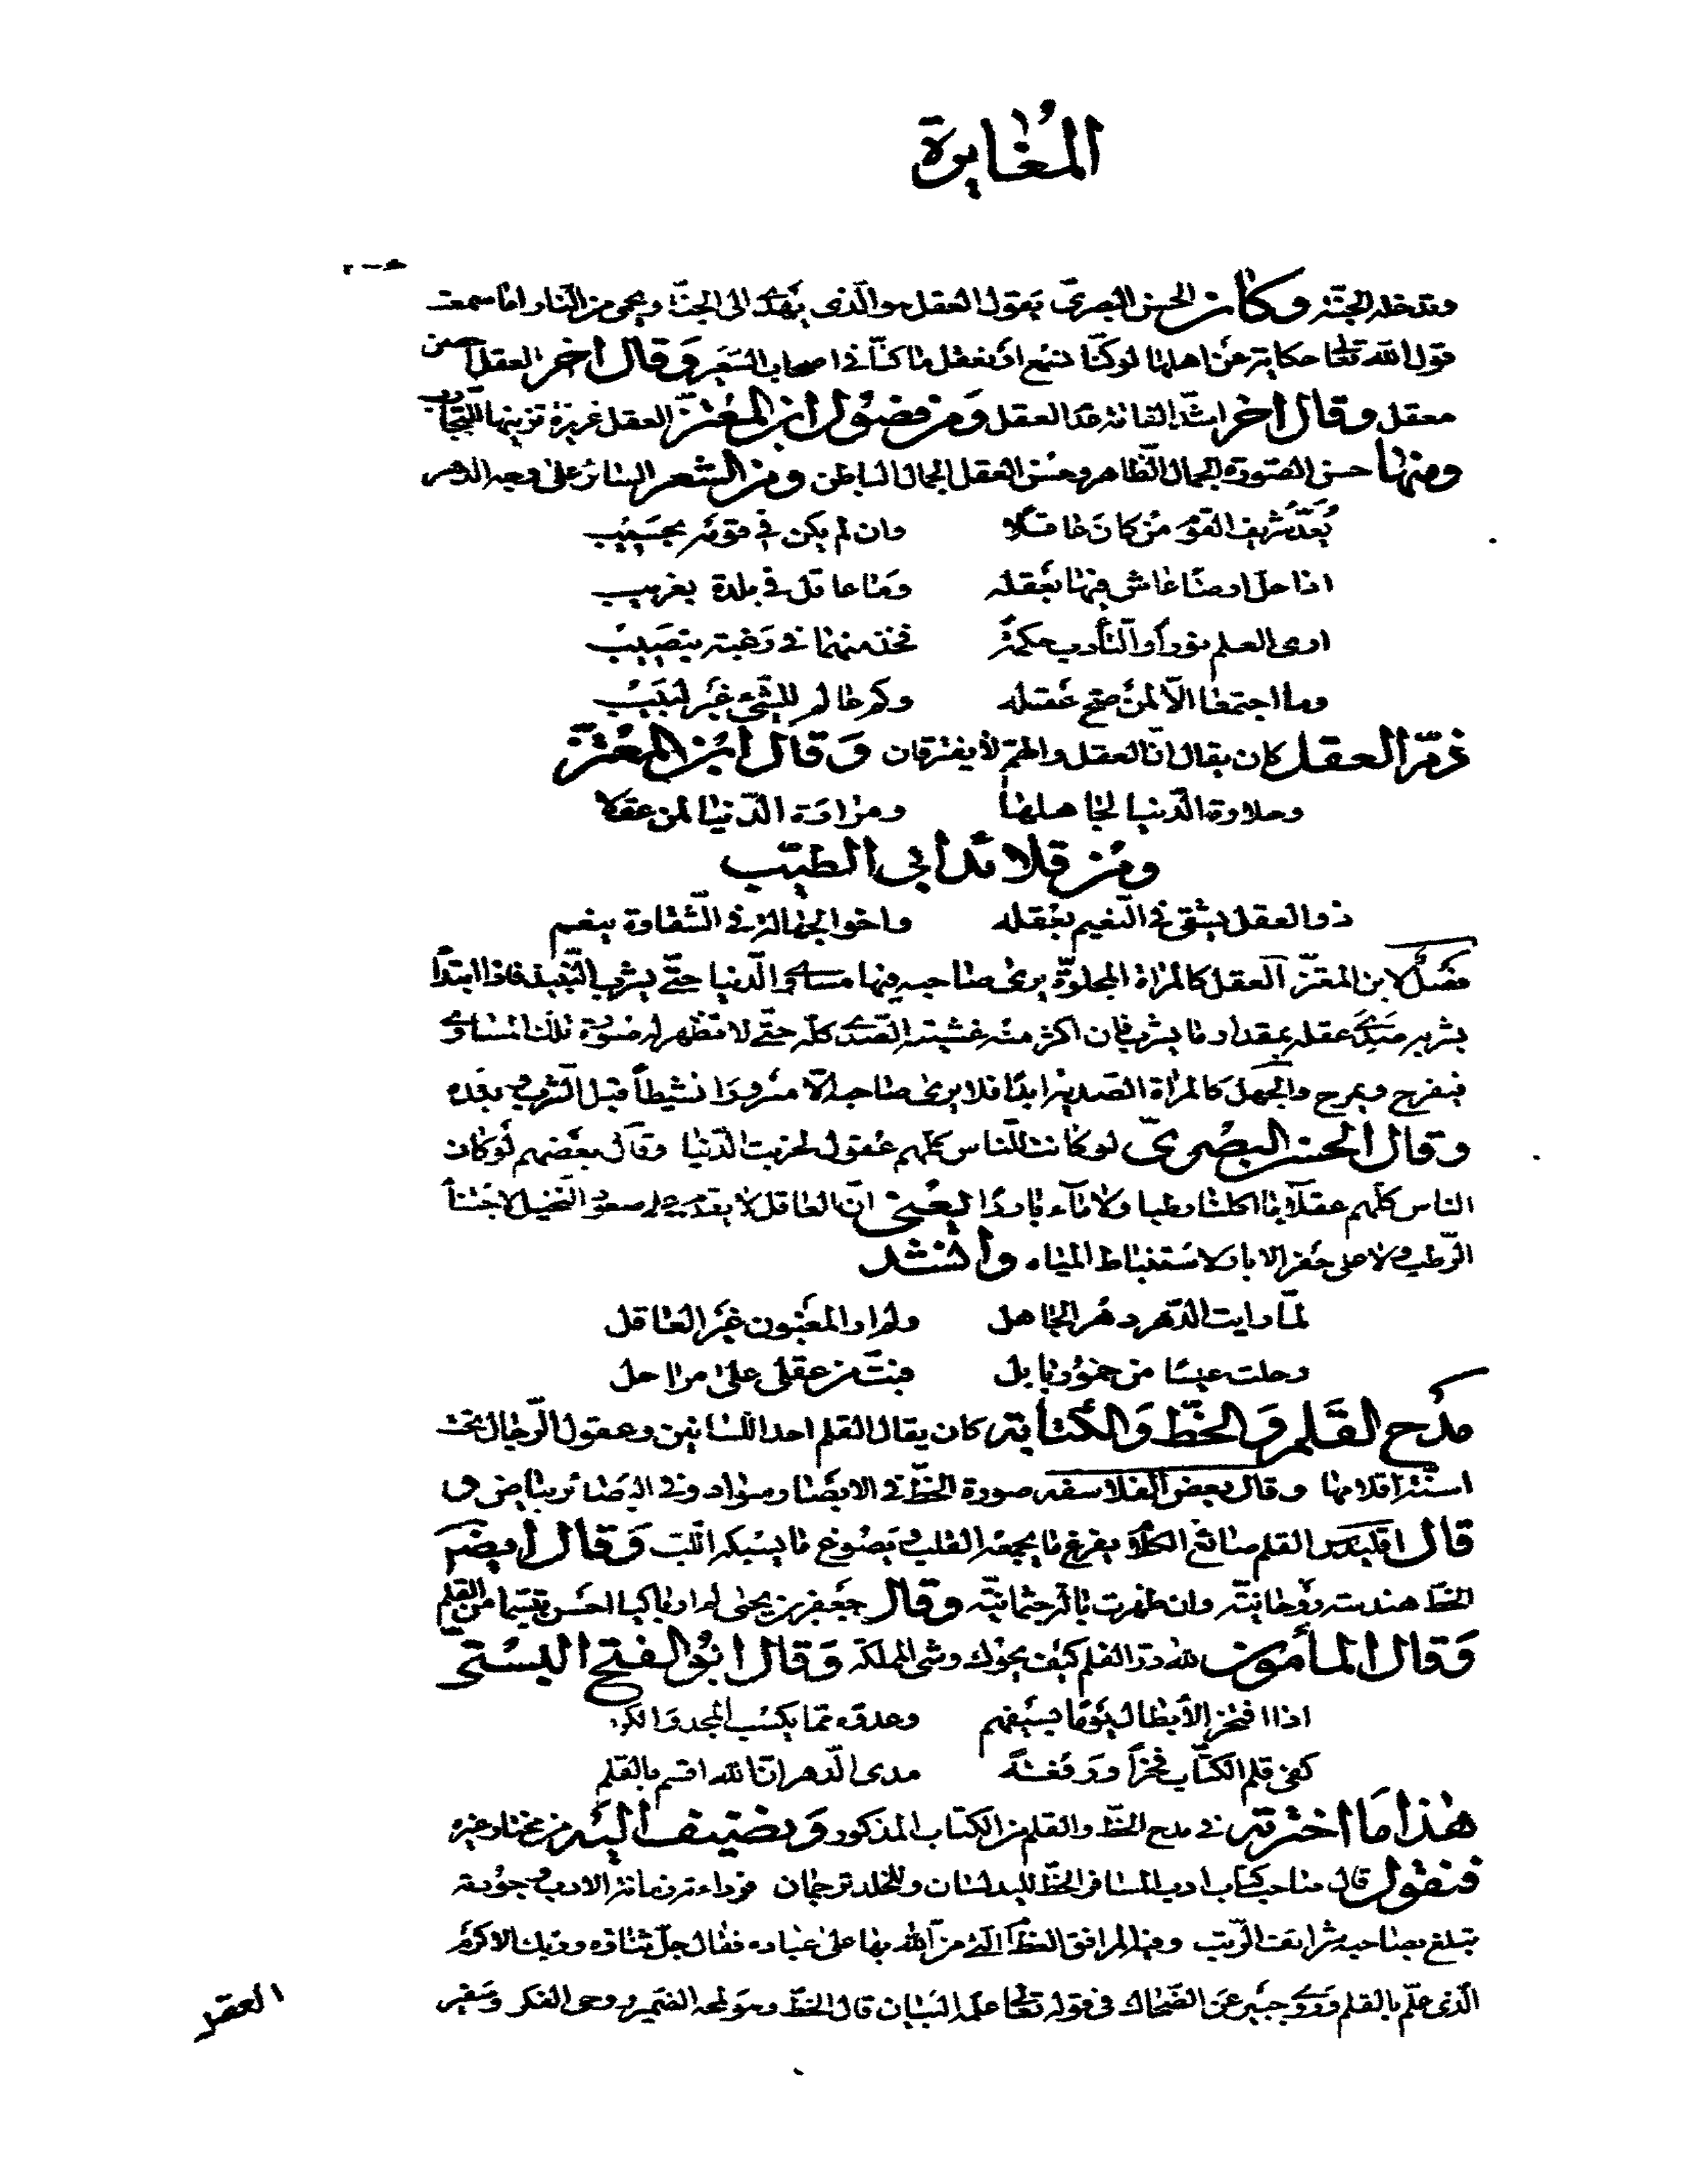 المُغايرة
وتدخله الجنّة وكان الحسن البصريّ يقول العقل هو الّذي يهدي الى الجنّة ويحمي من النار اما سمعت
قول الله تعالى حكاية عن اهلها لو كنّا نسمع او نعقل ما كنّا في اصحاب السّعير وقال آخر العقل احصن
معقل وقال آخر العقل ومن فصول ابن المعتزّ العقل غريزة تزينها التجارب
ومنها حسن الصّورة الجمال الظّاهر وحسن العقل الجمال الباطن ومن الشعر السائر على وجه الدهر
يُعَدّ شريف القوم من كان عاقلا وان لم يكن في قومه بحسيب
اذا حل ارضا عاش فيها بعقله وما عاقل في بلدة بغريب
ارى العلم نورا والتأدب حكمة فخذ منهما في رغبة بنصيب
وما اجتمعا الّا لمن صح عقله وكم عالم للشّيء غير لبيب
ذمّ العقل كان يقال انّ العقل والهمّ لا يفترقان وقال ابن المعتزّ
وحلاوة الدّنيا لجاهلها ومرارة الدّنيا لمن عقلا
ومن قلائد ابي الطيّب
ذو العقل يشقى في النّعيم بعقله واخو الجهالة في الشّقاوة ينعم
فصل لابن المعتزّ العقل كالمرآة المجلوّة يرى صاحبه فيها مساوي الدّنيا حتّى يشرب النّبيذ فاذا ابتدأ
بشربه صَدِئَ عقله بمقدار ما يشرب فان اكثر منه غشيته الصّدى كلّه حتّى لا تظهر له صورة تلك المساوي
فيفرح ويمرح والجهل كالمرآة الصدية ابدا فلا يرى صاحبه الّا مسرورا نشيطا قبل الشّرب وبعده
وقال الحسن البصريّ لو كانت للنّاس كلّهم عقول لخربت الدّنيا وقال بعضهم لو كان
الناس كلّهم عقلاء ما اكلنا رطبا ولا ماء باردا يعني انّ العاقل لا يقدم على صعود النّخيل لاجتناء
الرّطب ولا على حفر الابار لاستنباط المياه وانشد
لمّا رايت الدّهر دهر الجاهل ولم ار المغبون غير العاقل
رحلت عيسا من خمور بابل فبتّ من عقلي على مراحل
مدح القلم والخطّ والكتابة كان يقال القلم احد اللّسانين وعقول الرّجال تحت
اسنّة اقلامها وقال بعض الفلاسفه صورة الخطّ في الابصار سواد وفي البصائر بياض و
قال اقليدس القلم صائغ الكلام يفرغ ما يجمعه القلب ويصوغ ما يسبكه اللّب وقال ايضا
الخطّ هندسة روحانيّة وان ظهرت بآلة جثمانيّة وقال جعفر بن يحيى لم ار باكيا احسن تبسّما من القلم
وقال المأمون لله درّ القلم كيف يحوك وشي المملكة وقال ابو الفتح البستيّ
اذا افتخر الأبطال يوما بسيفهم وعدوه ممّا يكسب المجد والكرم
كفى قلم الكتّاب فخرا ورفعة مدى الدّهر انّ الله اقسم بالقلم
هذا ما اخترته في مدح الخطّ والقلم من الكتاب المذكور ونضيف اليه من مختار غيره
فنقول قال صاحب كتاب ادب المسافر الخطّ لليد لسان وللخلد ترجمان فرداءته زمانة الادب وجودته
تبلغ بصاحبه شرائف الرّتب وفيه المرافق العظام الّتي منّ الله بها على عباده فقال جلّ ثناؤه وربّك الاكرم
الّذي علّم بالقلم وروى جبير عن الضّحاك في قوله تعالى علّمه البيان قال الخطّ وهو لمحة الضمير ووحي الفكر وسفير
العقل